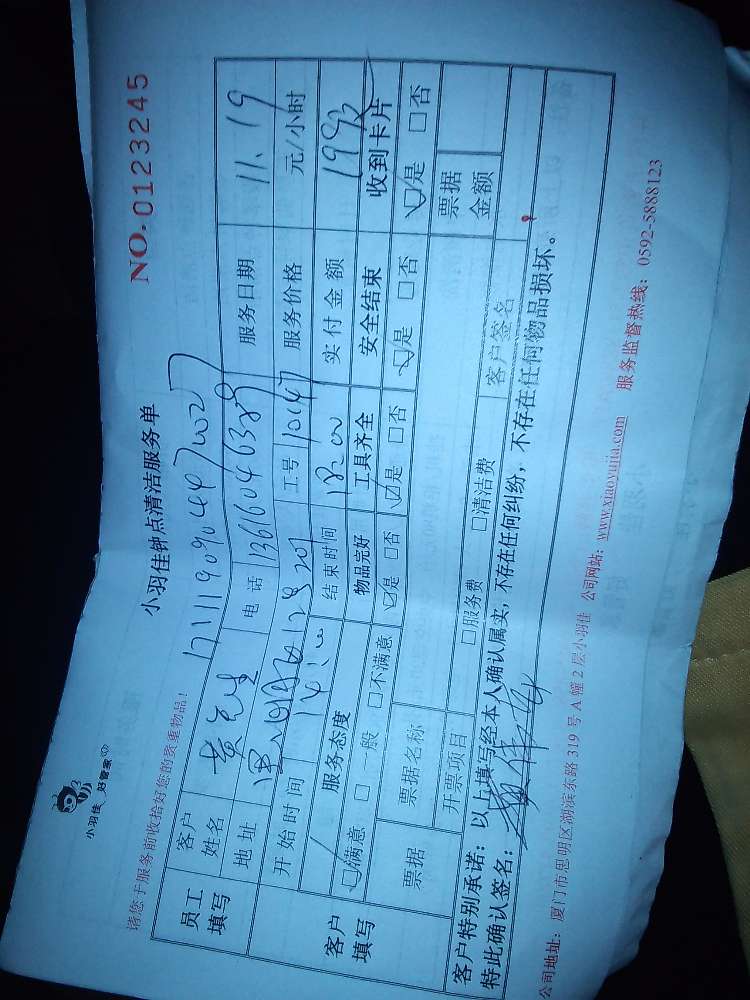 小羽佳 好管家
小羽佳钟点清洁服务单
NO.0123245
请您于服务前收拾好您的贵重物品！
员工填写
客户姓名 黄先生 电话 服务日期 11.19
地址 工号 服务价格 元/小时
开始时间 14:00 结束时间 18:00 实付金额
客户填写
服务态度 物品完好 工具齐全 安全结束 收到卡片
☑满意 □一般 □不满意 ☑是 □否 ☑是 □否 ☑是 □否 ☑是 □否
票据 票据名称 票据金额
开票项目 □服务费 □清洁费 客户签名
客户特别承诺：以上填写经本人确认属实，不存在任何纠纷，不存在任何物品损坏。
特此确认签名：
公司地址：厦门市思明区湖滨东路319号A幢2层小羽佳 公司网站：www.xiaoyujia.com 服务监督热线：0592-5888123